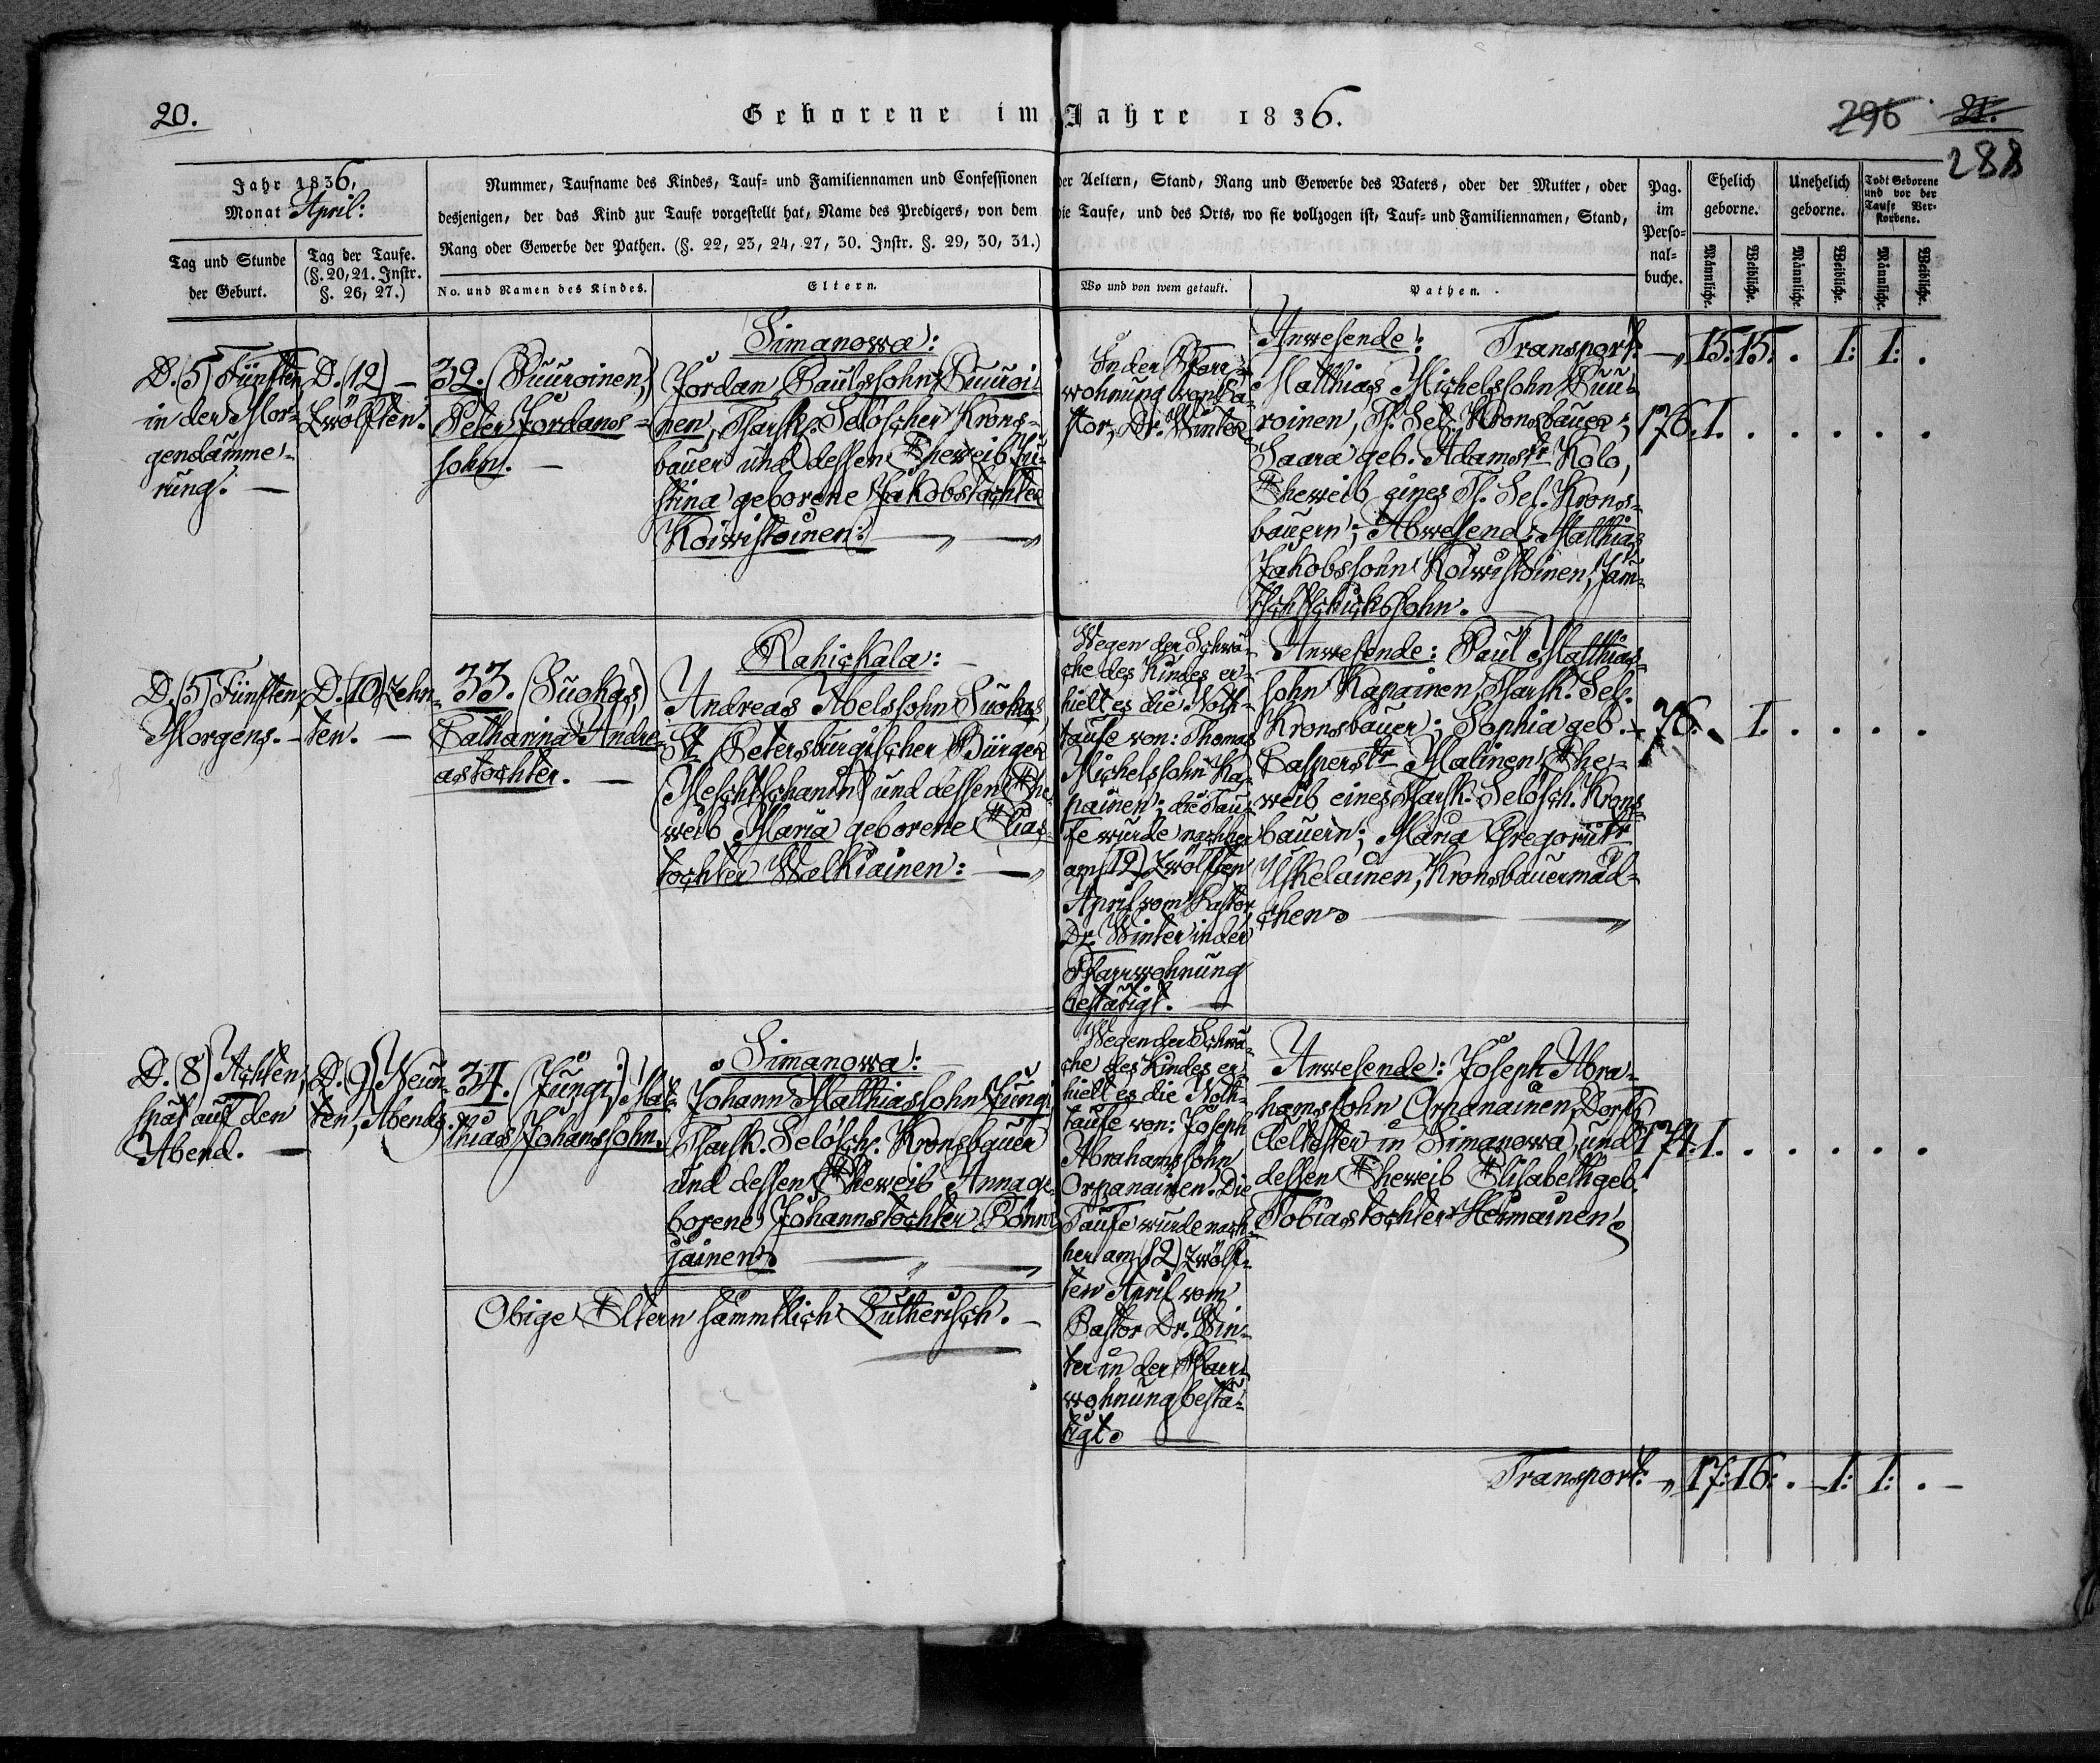 20.
Geborene im Jahre 1836.
296 21.
288
Jahr 1836,
Monat April:
Tag und Stunde
der Geburt.
Tag der Taufe.
(§. 20, 21. Instr.
§. 26, 27.)
Nummer, Taufname des Kindes, Tauf- und Familiennamen und Confessionen der Aeltern, Stand, Rang und Gewerbe des Vaters, oder der Mutter, oder
desjenigen, der das Kind zur Taufe vorgestellt hat, Name des Predigers, von dem die Taufe, und des Orts, wo sie vollzogen ist, Tauf- und Familiennamen, Stand,
Rang oder Gewerbe der Pathen. (§. 22, 23, 24, 27, 30. Instr. §. 29, 30, 31.)
No. und Namen des Kindes.
Eltern.
Wo und von wem getauft.
Pathen.
Pag.
im
Perso-
nal-
buche.
Ehelich
geborne.
Unehelich
geborne.
Todt Geborene
und vor der
Taufe Ver-
storbene.
Männliche.
Weibliche.
Männliche.
Weibliche.
Männliche.
Weibliche.
D. (5) Fünften
in der Mor-
gendämme-
rung. —
D. (12) —
Zwölften.
32. (Puuroinen,)
Peter Jordans-
sohn. —
Simanowa:
Jordan Paulssohn Puuroi-
nen, Zarsk. Selöscher Krons-
bauer und dessen Eheweib
geborene Jakobstochter
Koiwistoinen: —
In der Pfarr-
wohnung von Pa-
stor, Dr. Winter
Anwesende: Transport: — 15: 15: . 1: 1: .
Matthias Michelssohn Puu-
roinen, Z. Sel. Kronsbauer;
Saara geb. Adamstr Kolo,
Eheweib eines Z. Sel. Krons-
bauern; Abwesend: Matthias
Jakobssohn Koiwistoinen, Jäm-
schtschickssohn.
176. 1. . . . . .
D. (5) Fünften,
Morgens. —
D. (10) Zehn-
ten. —
33. (Suokas,)
Catharina Andre-
astochter. —
Rahickala:
Andreas Abelssohn Suokas,
St. Petersburgischer Bürger
(Meschtschanin) und dessen Ehe-
weib Maria geborene Elias-
tochter Walkiainen: —
Wegen der Schwä-
che des Kindes er-
hielt es die Noth-
taufe von: Thomas
Michelssohn Ka-
painen; die Tau-
fe wurde nachher
am (12) Zwölften
April vom Pastor
Dr. Winter in der
Pfarrwohnung
bestätigt. —
Anwesende: Paul Matthias-
sohn Kapainen, Zarsk. Sel.
Kronsbauer; Sophia geb.
Casperstr Malinen Ehe-
weib eines Zarsk. Selösch. Krons-
bauern; Maria Gregoriitr
Uskelainen, Kronsbauermäd-
chen.
76. . 1. . . . .
D. (8) Achten,
spät auf den
Abend. —
D. (9) Neun-
ten, Abends.
34. (Jungi,) Mat-
thias Johanssohn.
Simanowa:
Johann Matthiassohn Jungi,
Zarsk. Selösch. Kronsbauer
und dessen Eheweib Anna ge-
borene Johannstochter
jainen.
Wegen der Schwä-
che des Kindes er-
hielt es die Noth-
taufe von: Joseph
Abrahamssohn
Orpanainen. Die
Taufe wurde nach-
her am (12) Zwölf-
ten April vom
Pastor Dr. Win-
ter in der Pfarr-
wohnung bestä-
tigt.
Anwesende: Joseph Abra-
hamssohn Orpanainen, Dorfs
Aeltester in Simanowa, und
dessen Eheweib Elisabeth geb.
Tobiastochter Hermainen.
174. 1. . . . . .
Obige Eltern sämmtlich Lutherisch. —
Transport: — 17: 16: . 1: 1: . —